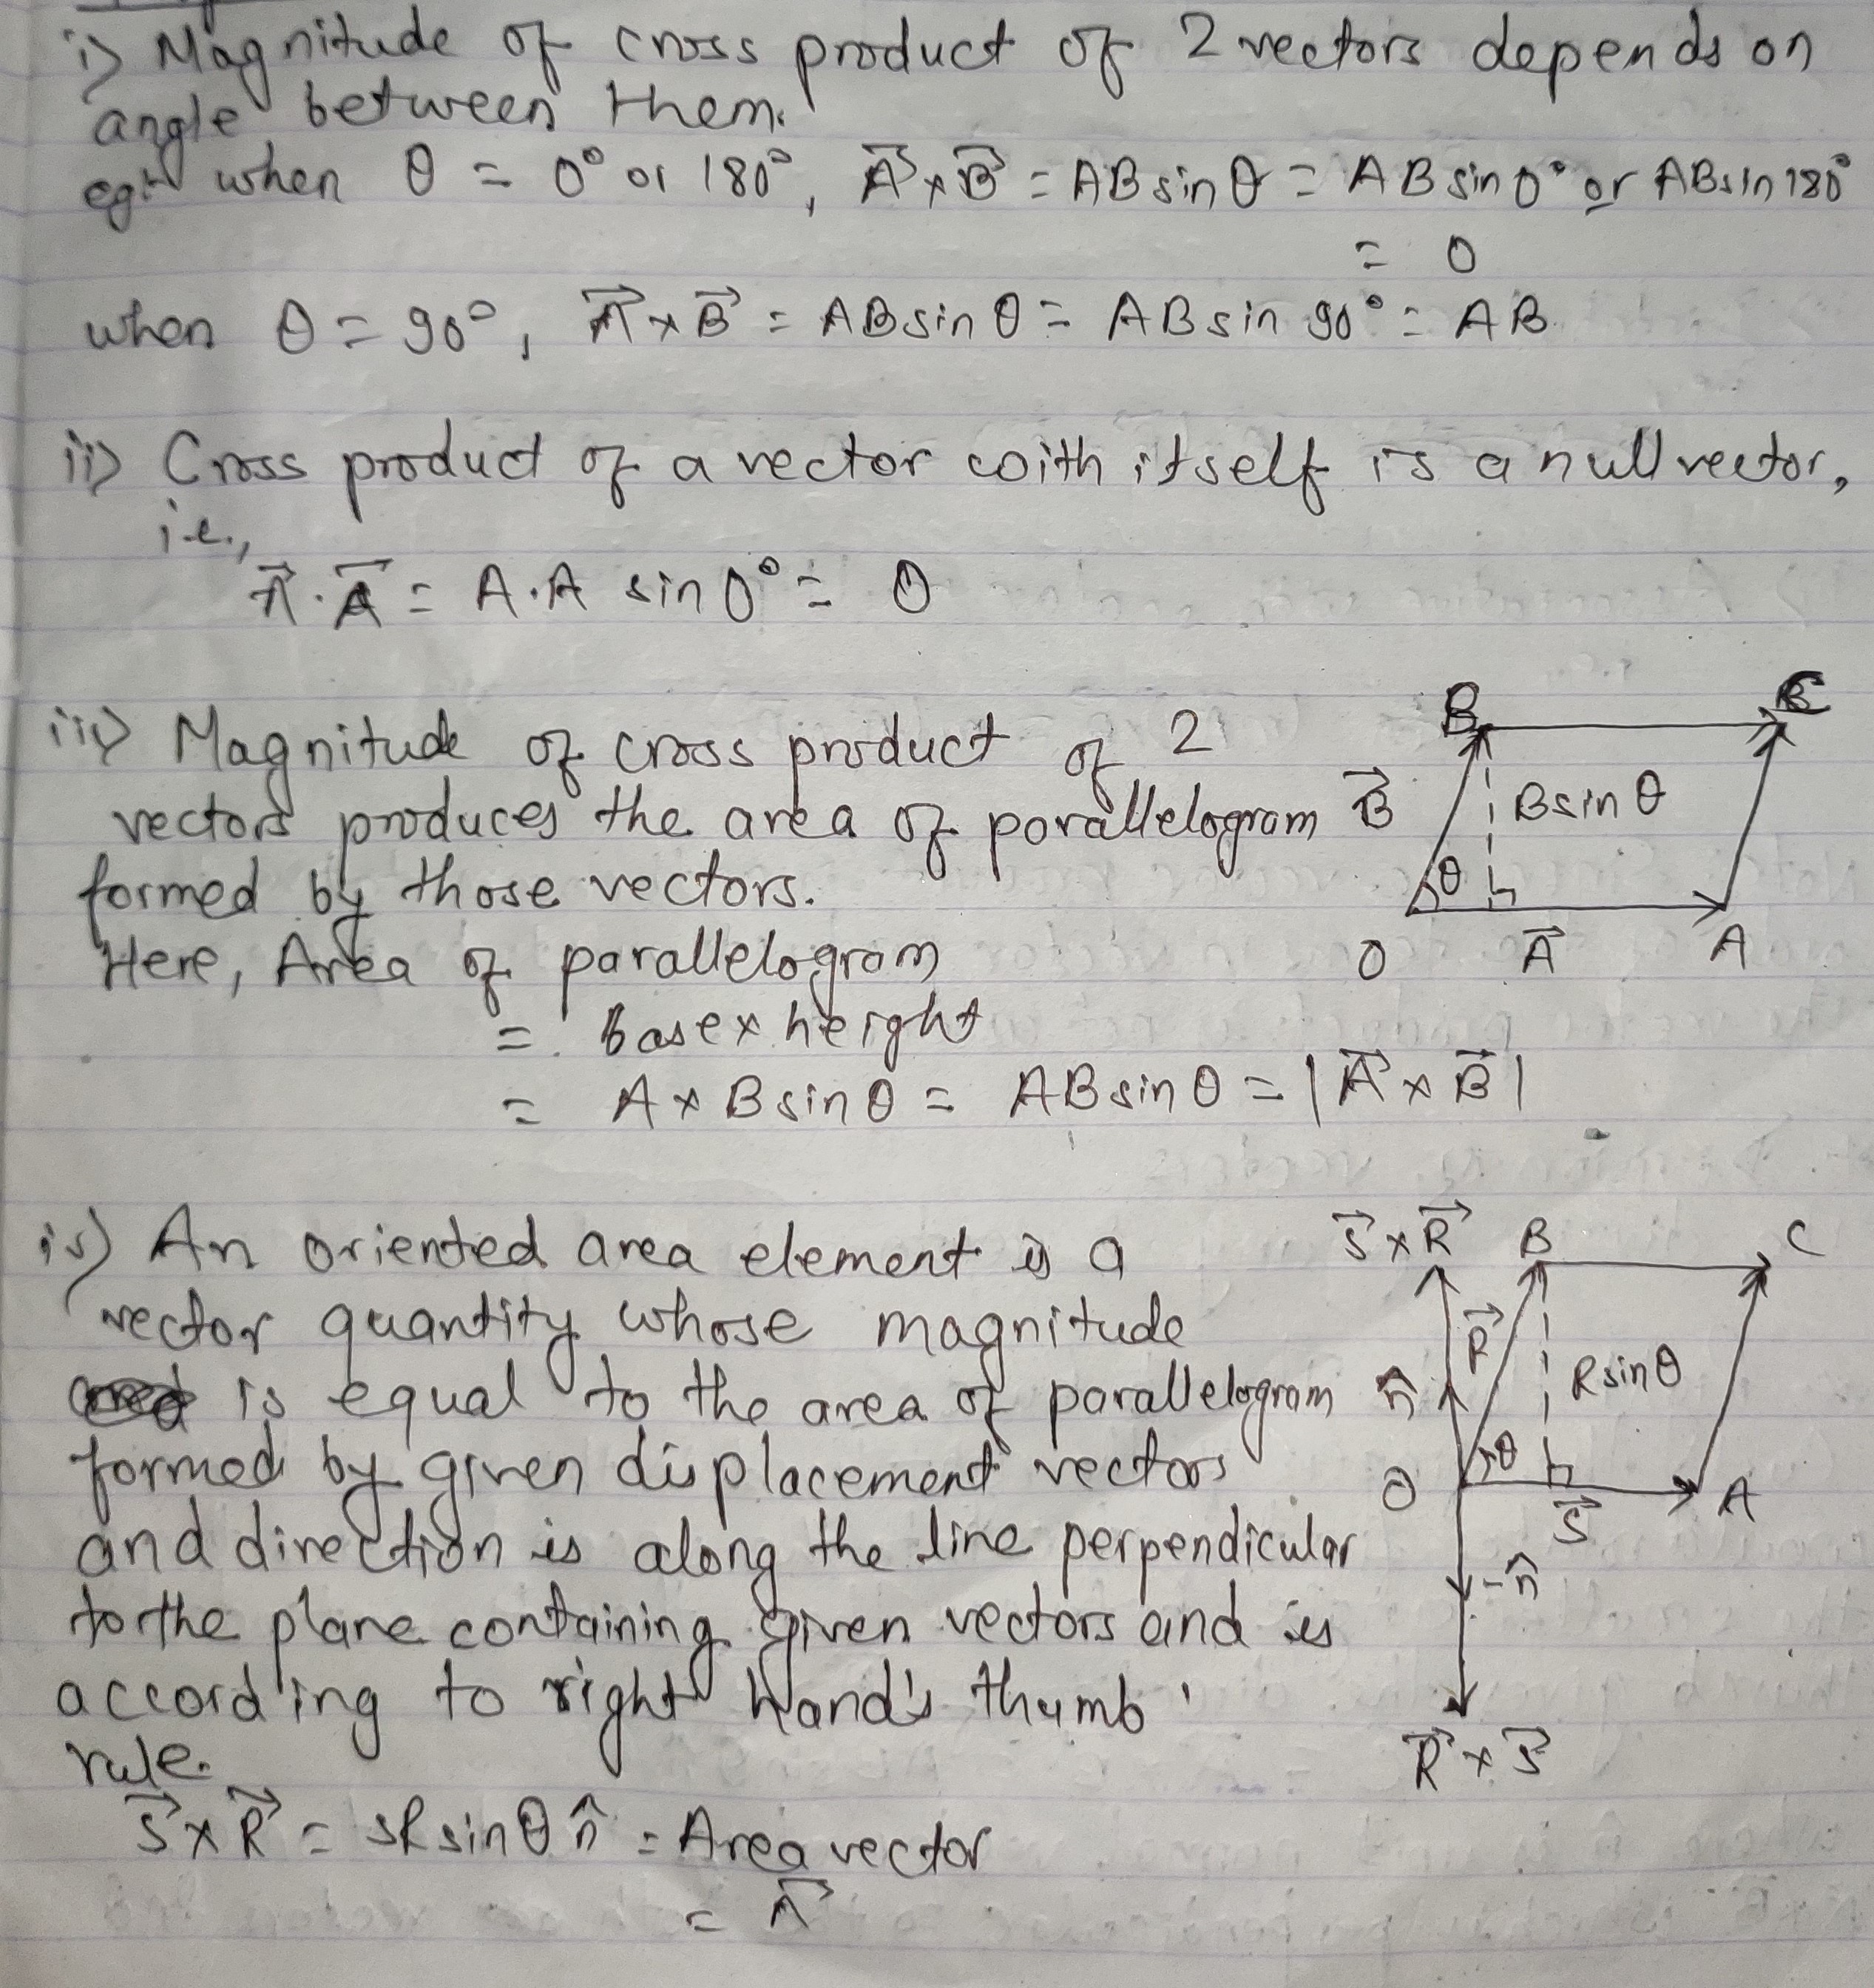 i) Magnitude of cross product of 2 vectors depends on
angle between them.
eg:- when θ = 0° or 180°, A⃗ × B⃗ = AB sin θ = AB sin 0° or AB sin 180°
= 0
when θ = 90°, A⃗ × B⃗ = AB sin θ = AB sin 90° = AB
ii) Cross product of a vector with itself is a null vector,
i.e.,
A⃗ · A⃗ = A.A sin 0° = 0
iii) Magnitude of cross product of 2
vectors produces the area of parallelogram
formed by those vectors.
Here, Area of parallelogram
= base × height
= A × B sin θ = AB sin θ = |A⃗ × B⃗|
B C
B⃗ B sin θ
θ
O A⃗ A
iv) An oriented area element is a
vector quantity whose magnitude
is equal to the area of parallelogram
formed by given displacement vectors
and direction is along the line perpendicular
to the plane containing given vectors and is
according to right hand's thumb
rule.
S⃗ × R⃗ = SR sin θ n̂ = Area vector
= A⃗
S⃗ × R⃗ B C
R⃗
n̂ R sin θ
θ
O S⃗ A
-n̂
R⃗ × S⃗